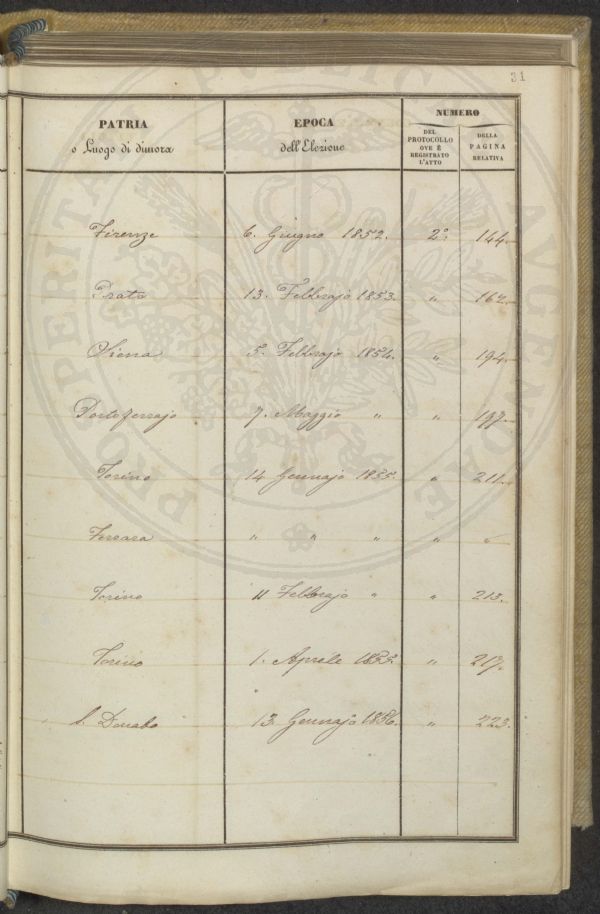 31
PATRIA
o Luogo di dimora
EPOCA
dell'Elezione
NUMERO
DEL
PROTOCOLLO
OVE È
REGISTRATO
L'ATTO
DELLA
PAGINA
RELATIVA
Firenze 6. Giugno 1852. 2°. 144.
Prato 13. Febbrajo 1853. " 162.
Siena 5. Febbrajo 1854. " 194.
Portoferrajo 7. Maggio " " 197.
Torino 14 Gennajo 1855. " 211.
Ferrara " " " " "
Torino 11 Febbrajo " " 213.
Torino 1. Aprile 1855. " 217.
S. Donato 13. Gennajo 1856. " 223.
PROSPERITATI PUBLICAE AUGENDAE